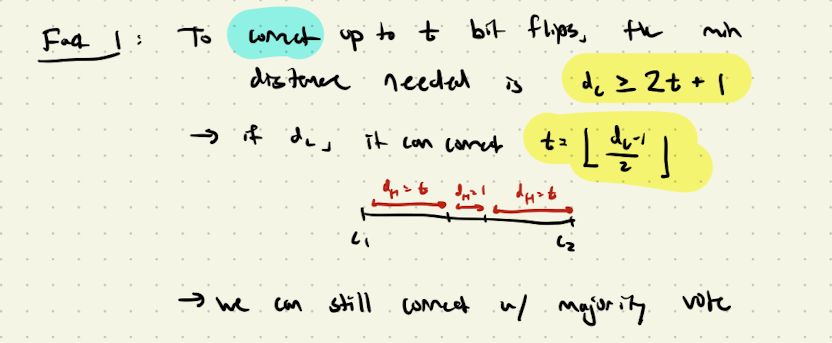 Fact 1: To correct up to t bit flips, the min
distance needed is d_c ≥ 2t + 1
→ if d_c, it can correct t = ⌊ (d_c - 1)/2 ⌋
d_H = t d_H = 1 d_H = t
c_1 c_2
→ we can still correct w/ majority vote